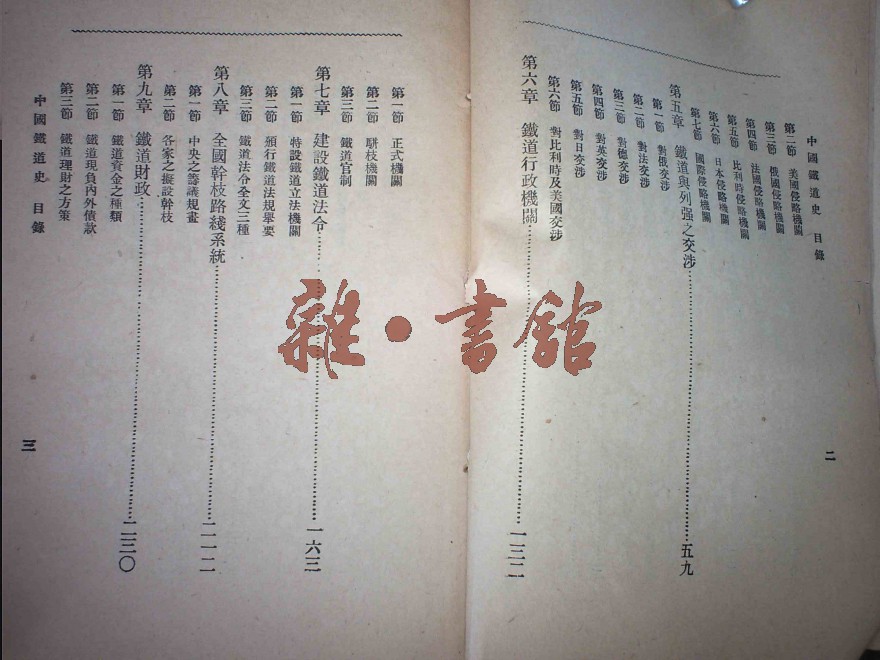 中國鐵道史 目錄
第二節 美國侵略機關
第三節 俄國侵略機關
第四節 法國侵略機關
第五節 比利時侵略機關
第六節 日本侵略機關
第七節 國際侵略機關
第五章 鐵道與列强之交涉……五九
第一節 對俄交涉
第二節 對法交涉
第三節 對德交涉
第四節 對英交涉
第五節 對日交涉
第六節 對比利時及美國交涉
第六章 鐵道行政機關……一三二
二
第一節 正式機關
第二節 駢枝機關
第三節 鐵道官制
第七章 建設鐵道法令……一六三
第一節 特設鐵道立法機關
第二節 頒行鐵道法規舉要
第三節 鐵道法令全文三種
第八章 全國幹枝路綫系統……二一一
第一節 中央之籌議規畫
第二節 各家之擬設幹枝
第九章 鐵道財政……二三〇
第一節 鐵道資金之種類
第二節 鐵道現負內外債款
第三節 鐵道理財之方策
中國鐵道史 目錄
三
雜·書館